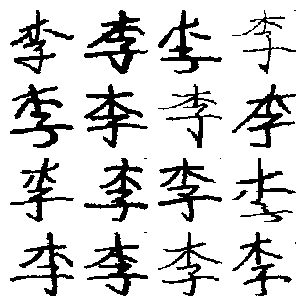 李李李李
李李李李
李李李李
李李李李